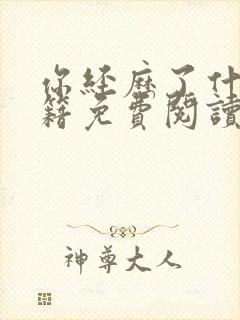 你經歷了什
籍免費閱讀
神尊大人